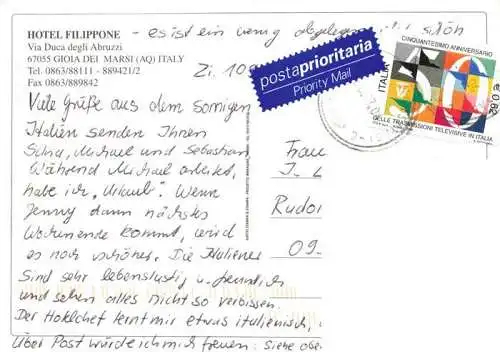 HOTEL FILIPPONE - es ist ein wenig abgelegen
Via Duca degli Abruzzi
67055 GIOIA DEI MARSI (AQ) ITALY
Tel. 0863/88111 - 889421/2
Fax 0863/889842
Zi. 109
postaprioritaria
Priority Mail
CINQUANTESIMO ANNIVERSARIO
ITALIA
€ 0,62
DELLE TRASMISSIONI TELEVISIVE IN ITALIA
Viele Grüße aus dem Sonnigen
Italien senden Ihnen
Silvia, Michael und Sebastian
Während Michael arbeitet,
habe ich „Urlaub". Wenn
Jenny dann nächstes
Wochenende kommt, wird
es noch schöner. Die Italiener
sind sehr lebenslustig u. freundlich
und sehen alles nicht so verbissen.
Der Hotelchef lernt mir etwas italienisch,
Über Post würde ich mich freuen. Siehe obe
Frau
I. L
Rudol
09